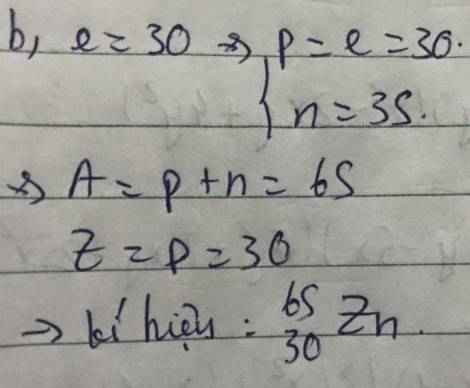 b, e = 30 => p = e = 30.
{ n = 35.
=> A = p + n = 65
Z = p = 30
→ kí hiệu : ⁶⁵₃₀Zn.